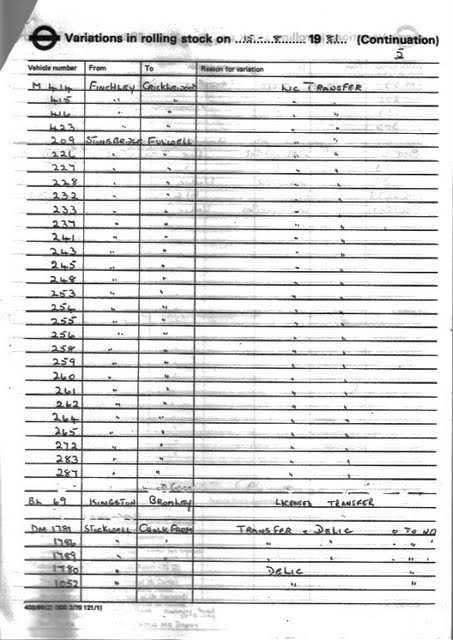 Variations in rolling stock on 15 - 8 1981 (Continuation)
5
Vehicle number From To Reason for variation
M 414 FINCHLEY CRICKLEWOOD LIC TRANSFER
415 " " " "
416 " " " "
423 " " " "
209 STONEBRIDGE FULWELL " "
226 " " " "
227 " " " "
228 " " " "
232 " " " "
233 " " " "
237 " " " "
241 " " " "
243 " " " "
245 " " " "
248 " " " "
253 " " " "
254 " " " "
255 " " " "
256 " " " "
258 " " " "
259 " " " "
260 " " " "
261 " " " "
262 " " " "
264 " " " "
265 " " " "
272 " " " "
283 " " " "
287 " " " "
BL 69 KINGSTON BROMLEY LICENSED TRANSFER
DM 1781 STOCKWELL CHALK FARM TRANSFER & DELIC O TO ND
1786 " " " " " " "
1789 " " " " " "
1780 " " DELIC "
1052 " " "